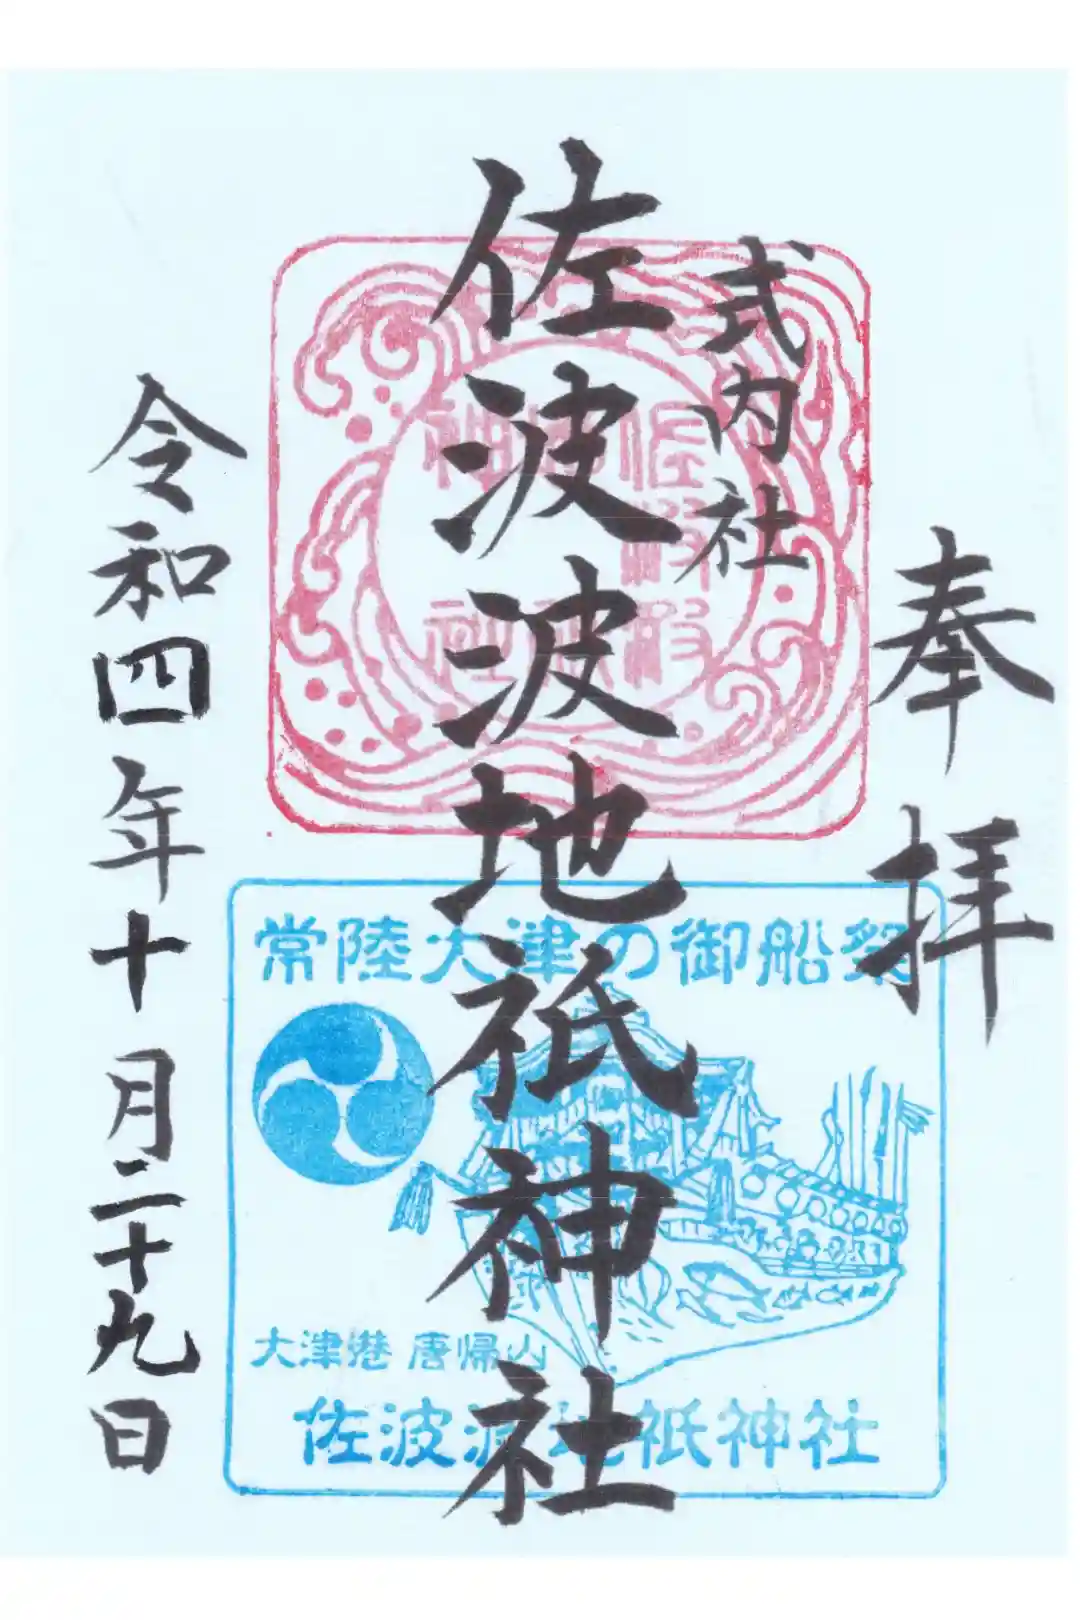 奉拝
式内社
佐波波地祇神社
令和四年十月二十九日
常陸大津の御船祭
大津港 唐帰山
佐波波地祇神社